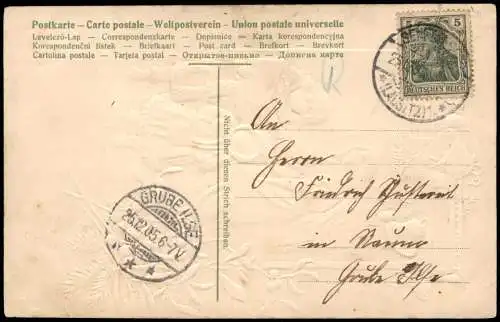 Postkarte - Carte postale - Weltpostverein - Union postale universelle
Levelező-Lap - Correspondenzkarte - Dopisnice - Karta korespondencyjna
Korespondenční lístek - Briefkaart - Post card - Brefkort - Brevkort
Cartolina postale - Tarjeta postal - Открытое-письмо - Дописна карте
5 5
DEUTSCHES REICH
(LAUSITZ) 1.
An
Herrn
Friedrich
in
Grube Ilse
Nicht über diesen Strich schreiben.
GRUBE ILSE
25.12.05.6-7V.